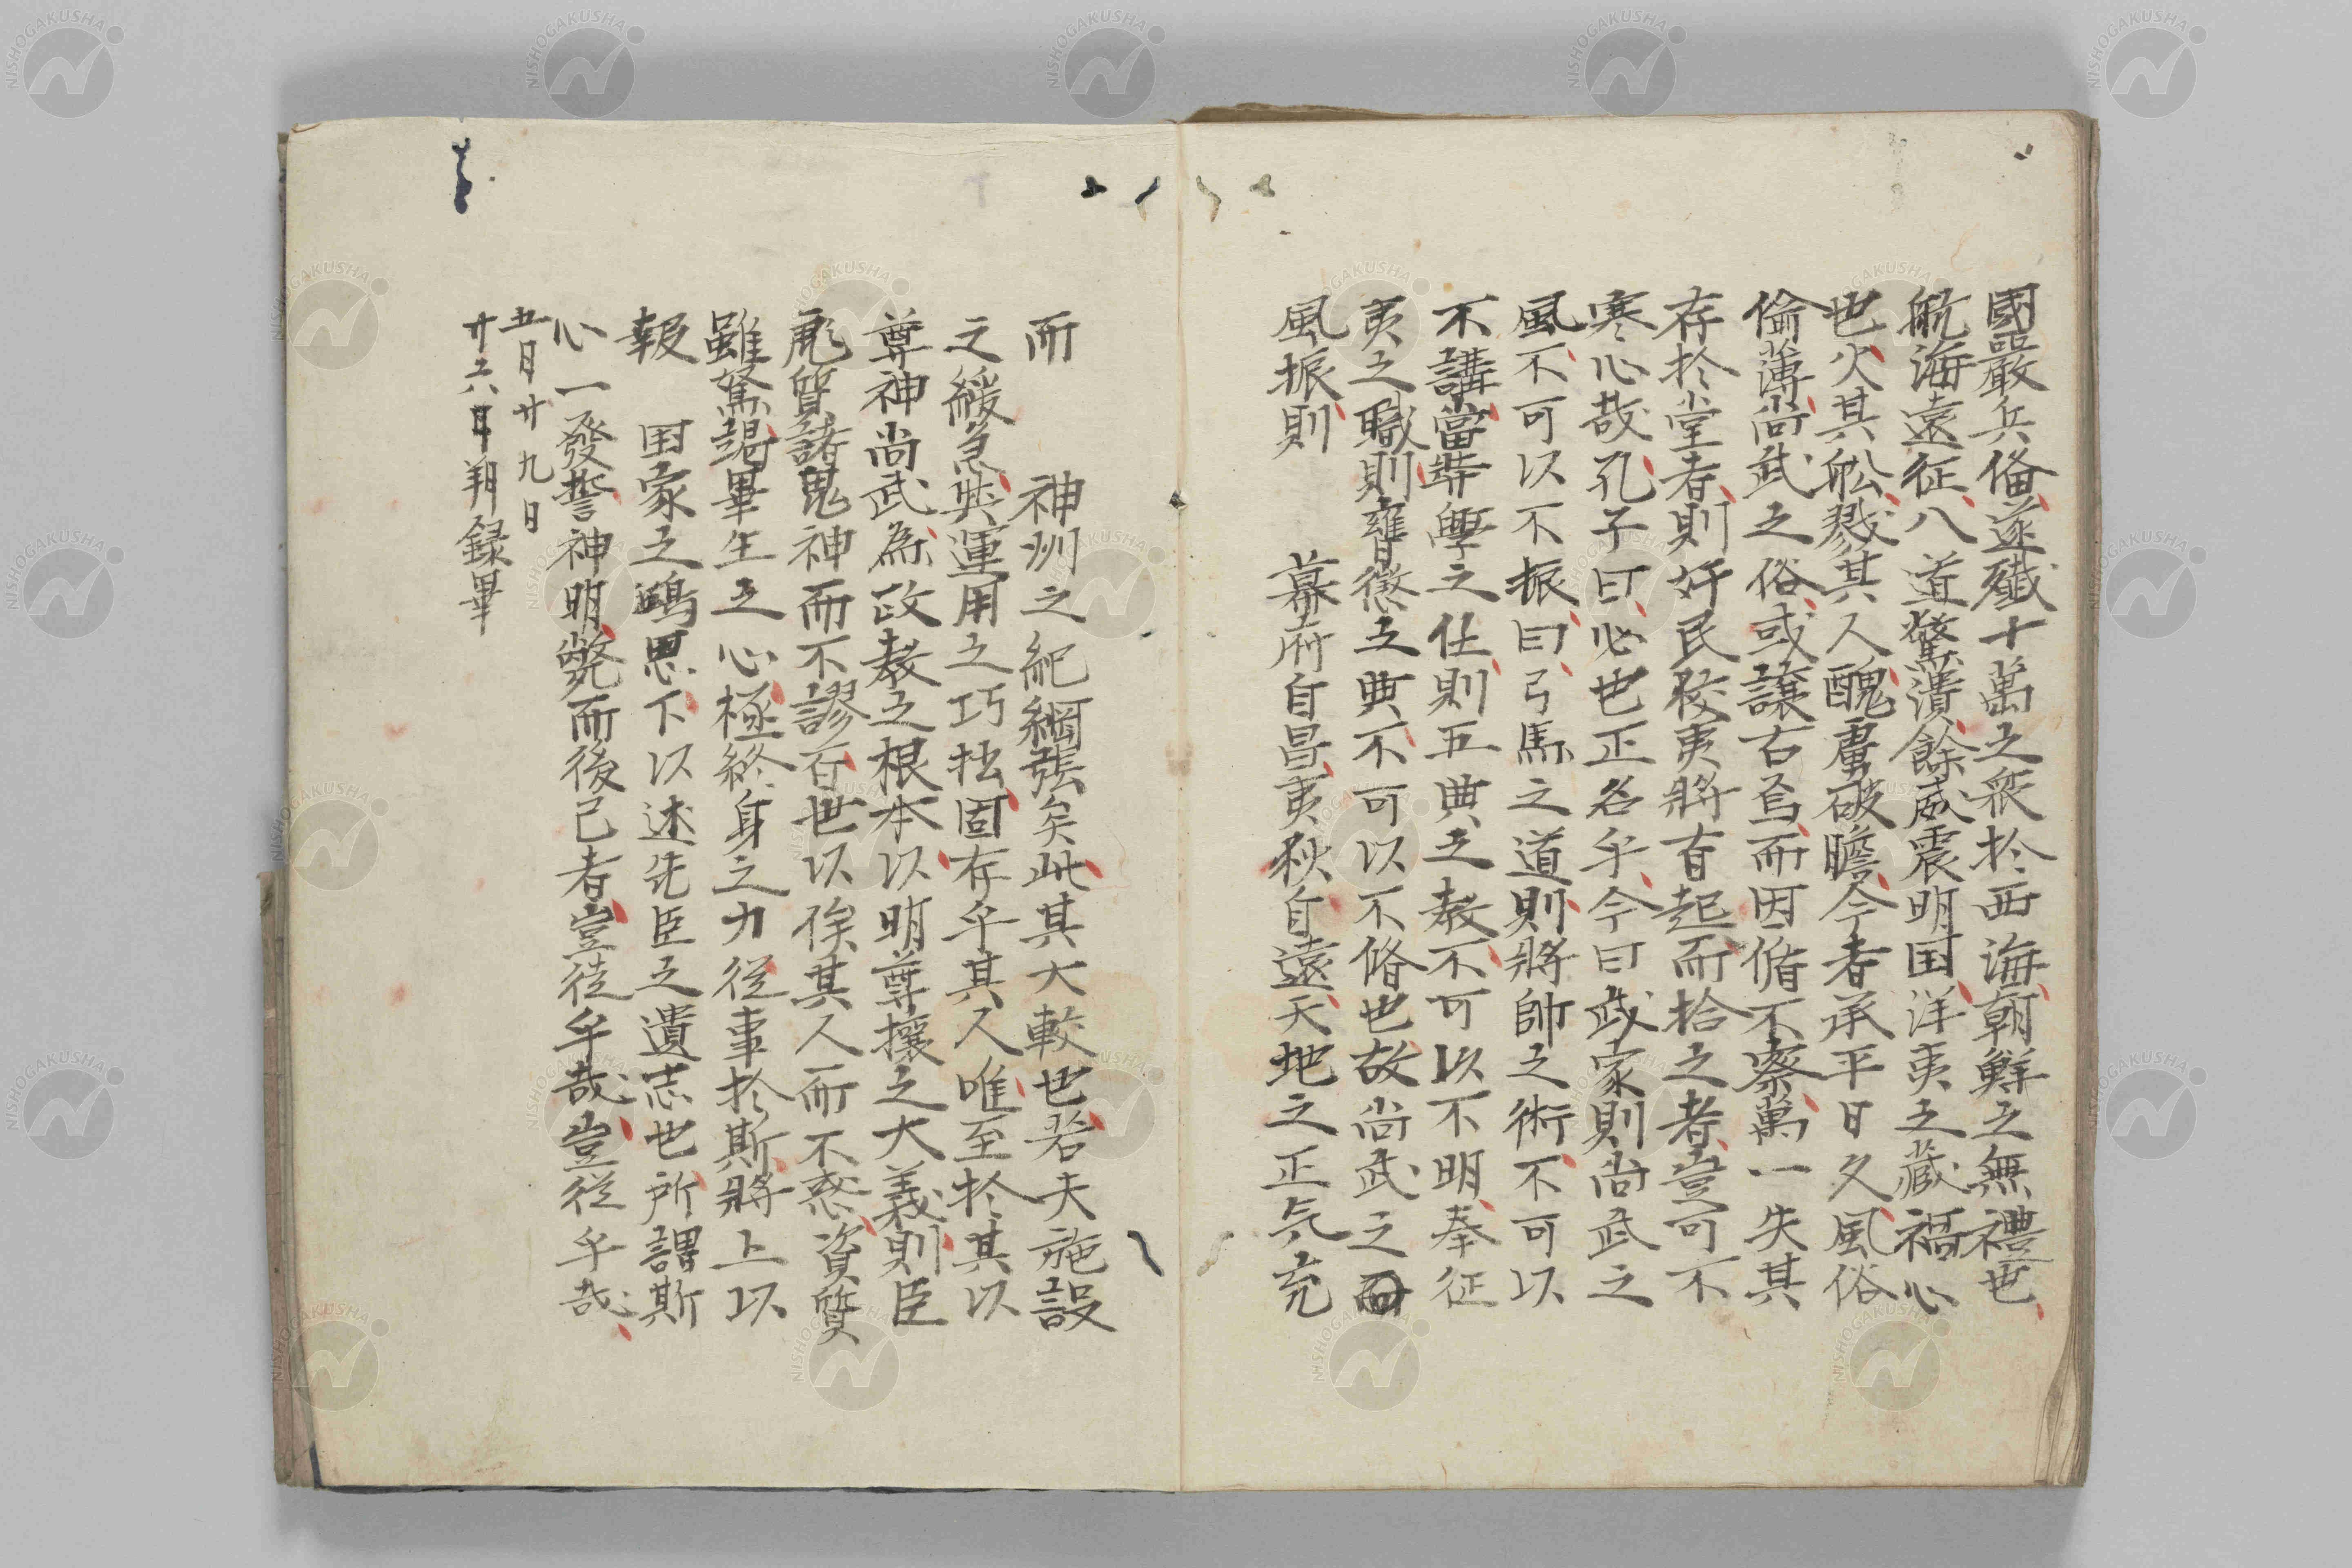 國嚴兵俻遂殱十萬之衆於西海朝鮮之無禮也
航海遠征八道驚潰餘威震明国洋夷之蔵禍心
也火其舩戮其人醜虜破膽今者承平日久風俗
偷薄尚武之俗或譲右焉而因循不察萬一失其
存於堂者則奸民狡夷將有起而拾之者豈可不
寒心哉孔子曰必也正名乎今曰武家則尚武之
風不可以不振曰弓馬之道則將帥之術不可以
不講當時學之仕則五典之教不可以不明奉征
夷之職則膺懲之典不可以不脩也故尚武之
風振則　幕府自昌夷狄自遠天地之正気充
而　神州之紀綱張矣此其大較也若夫施設
之緩急與運用之巧拙固存乎其人唯至於其以
尊神尚武為政教之根本以明尊攘之大義則臣
彪質諸鬼神而不謬百世以俟其人而不惑資質
雖駑竭畢生之心極終身之力従事於斯將上以
報　国家之鴻恩下以述先臣之遺志也所謂斯
心一發誓神明斃而後已者豈徒乎哉豈従乎哉
五月廿九日
廿六年朔録畢
NISHOGAKUSHA